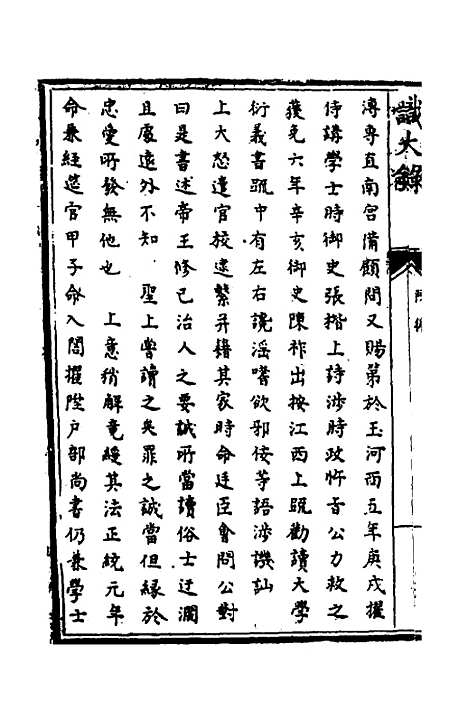 識大錄
溥專直南宫備顧問又賜第於玉河西五年庚戌擢
侍講學士時御史張楷上詩涉時政忤旨公力救之
獲免六年辛亥御史陳祚出按江西上疏勸讀大學
衍義書疏中有左右讒淫嗜欲邪佞等語涉譏訕
上大怒遣官校逮繫并籍其家時命廷臣會問公對
曰是書述帝王修己治人之要誠所當讀俗士迂濶
且處遠外不知 聖上嘗讀之矣罪之誠當但縁於
忠愛所發無他也 上意稍解竟緩其法正統元年
命兼經筵官甲子命入閣擢陞户部尚書仍兼學士